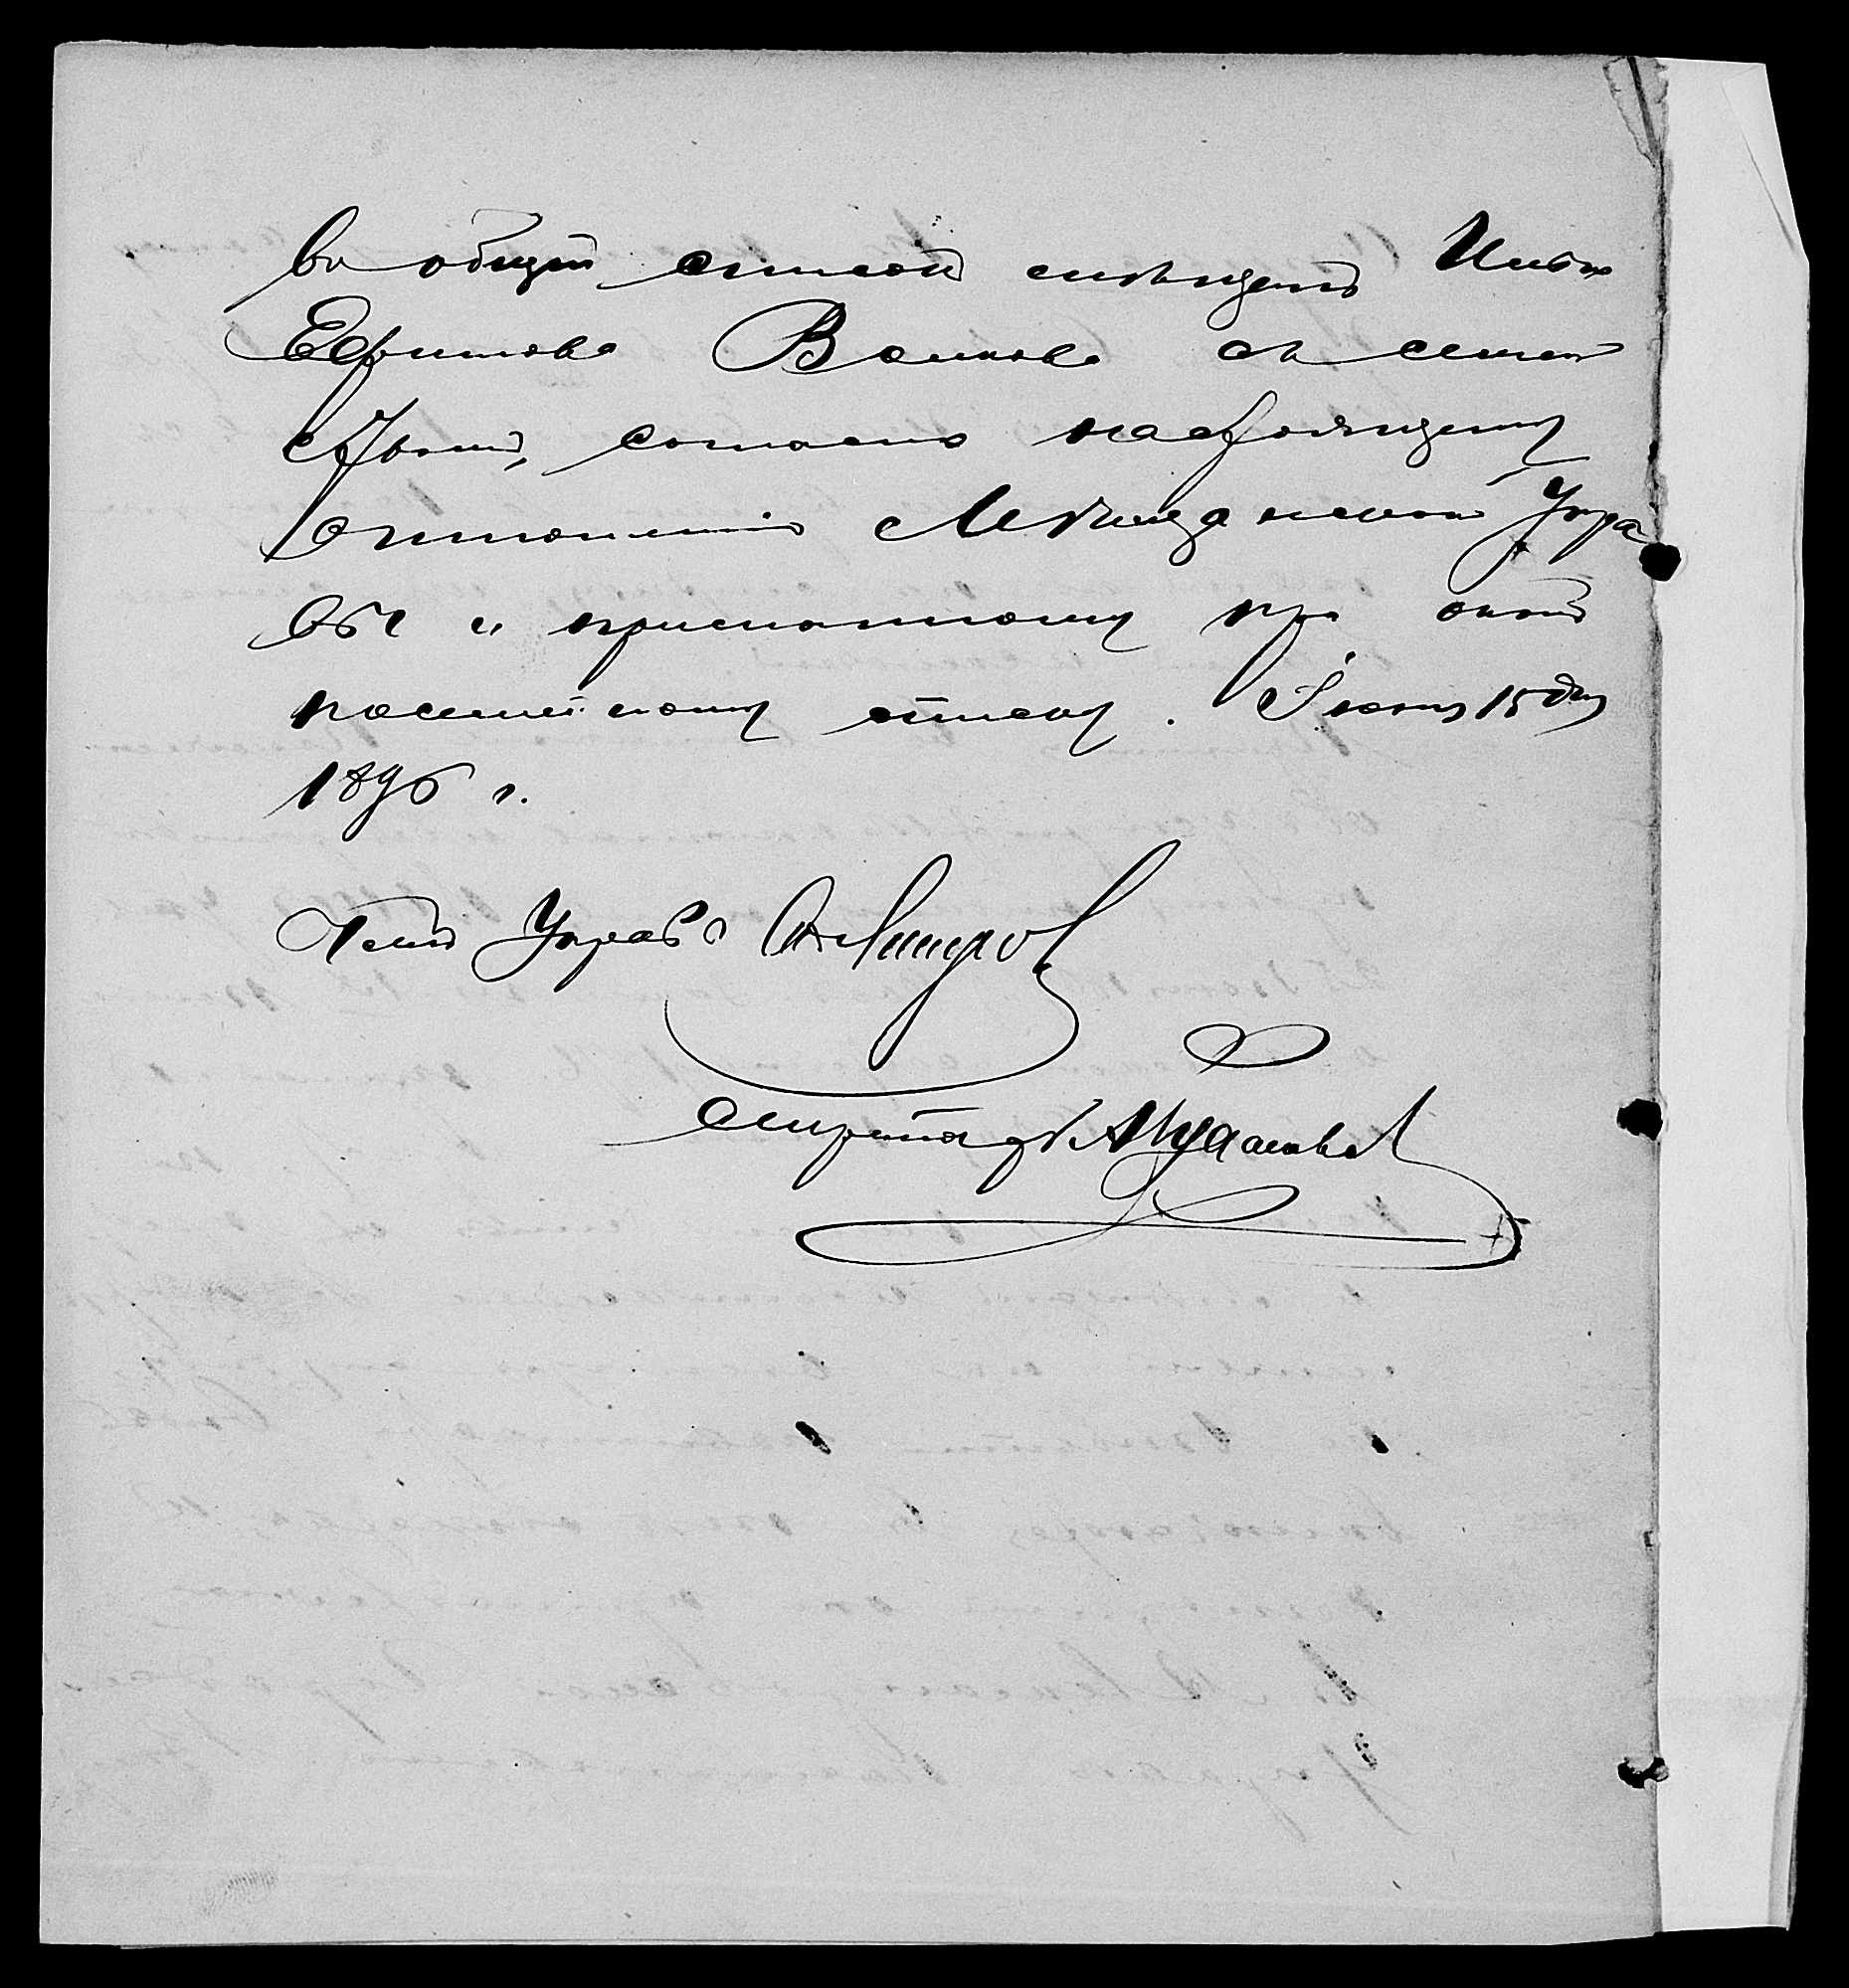 въ общій списокъ мѣщанъ Ивана
Ефимова Волкова съ семей
ствомъ, согласно настоящему
отношенію Мѣщанской Упра
вы и присланному при оной
посемейному списку. Іюня 15 дня
1896 г.
Членъ Управы
Секретарь